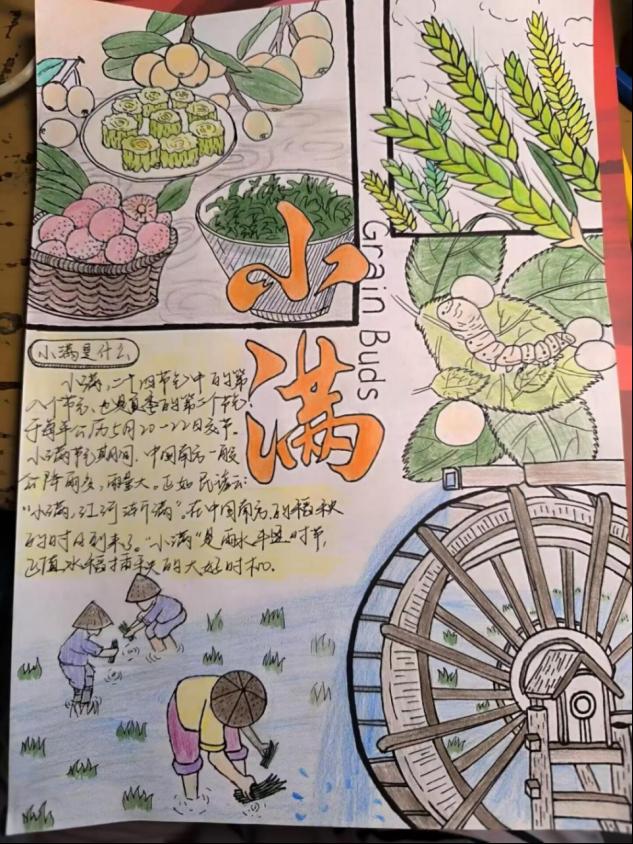 小满
Grain Buds
小满是什么
小满,二十四节气中的第
八个节气,也是夏季的第二个节气,
于每年公历5月20-22日交节。
小满节气期间,中国南方一般
降雨多,雨量大。正如民谚云:
“小满,江河渐满”。在中国南方的稻秧
的时日到来了。“小满”是雨水丰盈时节,
正值水稻插秧的大好时机。